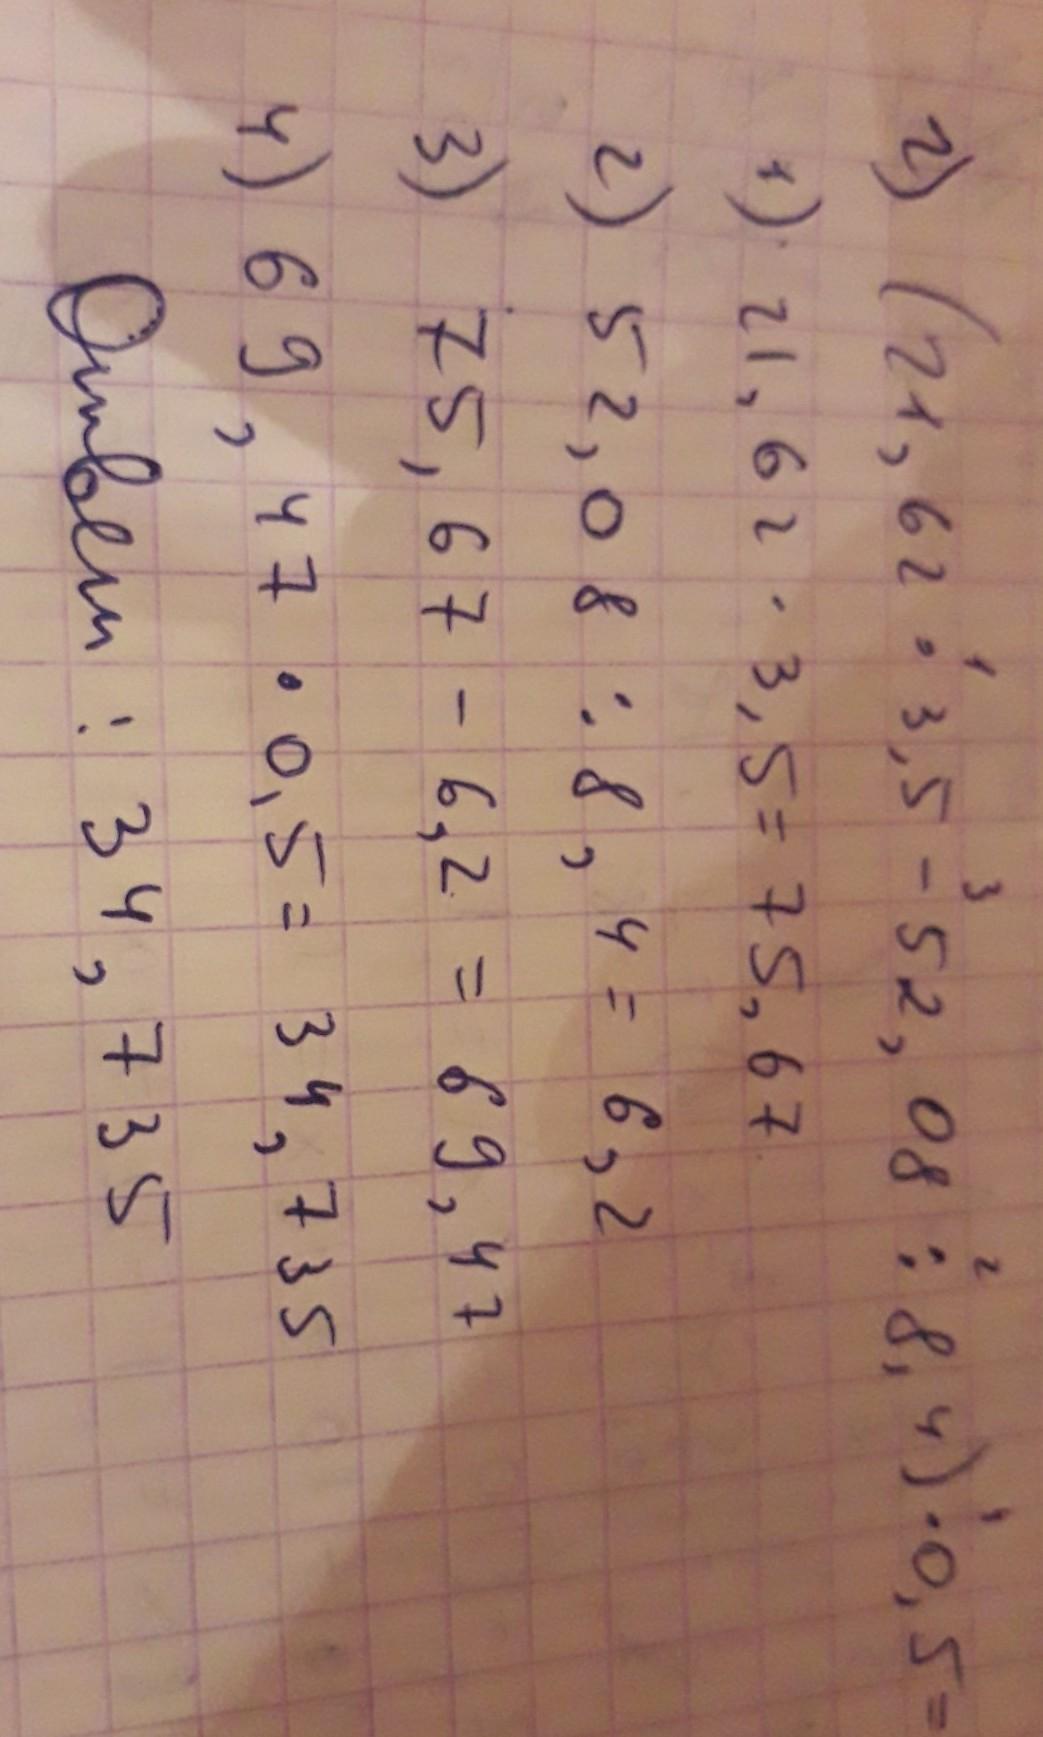 2) (21,62 · 3,5 - 52,08 : 8,4) · 0,5 =
1) 21,62 · 3,5 = 75,67
2) 52,08 : 8,4 = 6,2
3) 75,67 - 6,2 = 69,47
4) 69,47 · 0,5 = 34,735
Ответ: 34,735